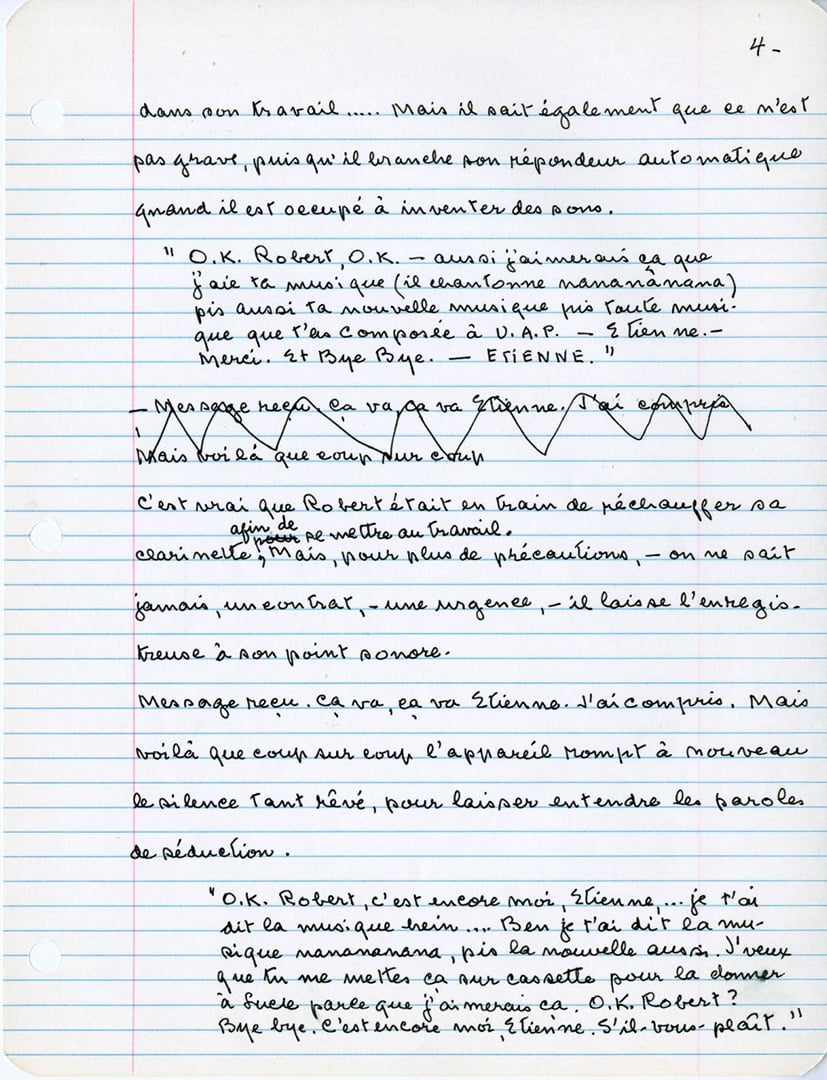 4-
dans son travail ..... Mais il sait également que ce n'est
pas grave, puisqu'il branche son répondeur automatique
quand il est occupé à inventer des sons.
" O.K. Robert, O.K. – aussi j'aimerais ça que
j'aie ta musique (il chantonne nanananana)
pis aussi ta nouvelle musique pis toute musi-
que que t'as composée à U.A.P. – Etienne.–
Merci. Et Bye Bye. — ETIENNE. "
– Message reçu. Ça va, ça va Etienne. J'ai compris
Mais voilà que coup sur coup
C'est vrai que Robert était en train de réchauffer sa
afin de
pour se mettre au travail.
clarinette, Mais, pour plus de précautions, – on ne sait
jamais, un contrat, – une urgence, – il laisse l'enregis-
treuse à son point sonore.
Message reçu. Ça va, ça va Etienne. J'ai compris. Mais
voilà que coup sur coup l'appareil rompt à nouveau
le silence tant rêvé, pour laisser entendre les paroles
de séduction.
"O.K. Robert, c'est encore moi, Etienne,... je t'ai
dit la musique hein .... Ben je t'ai dit la mu-
sique nanananana, pis la nouvelle aussi. J'veux
que tu me mettes ça sur cassette pour la donner
à parce que j'aimerais ça. O.K. Robert?
Bye bye. C'est encore moi, Etienne. S'il-vous-plaît."